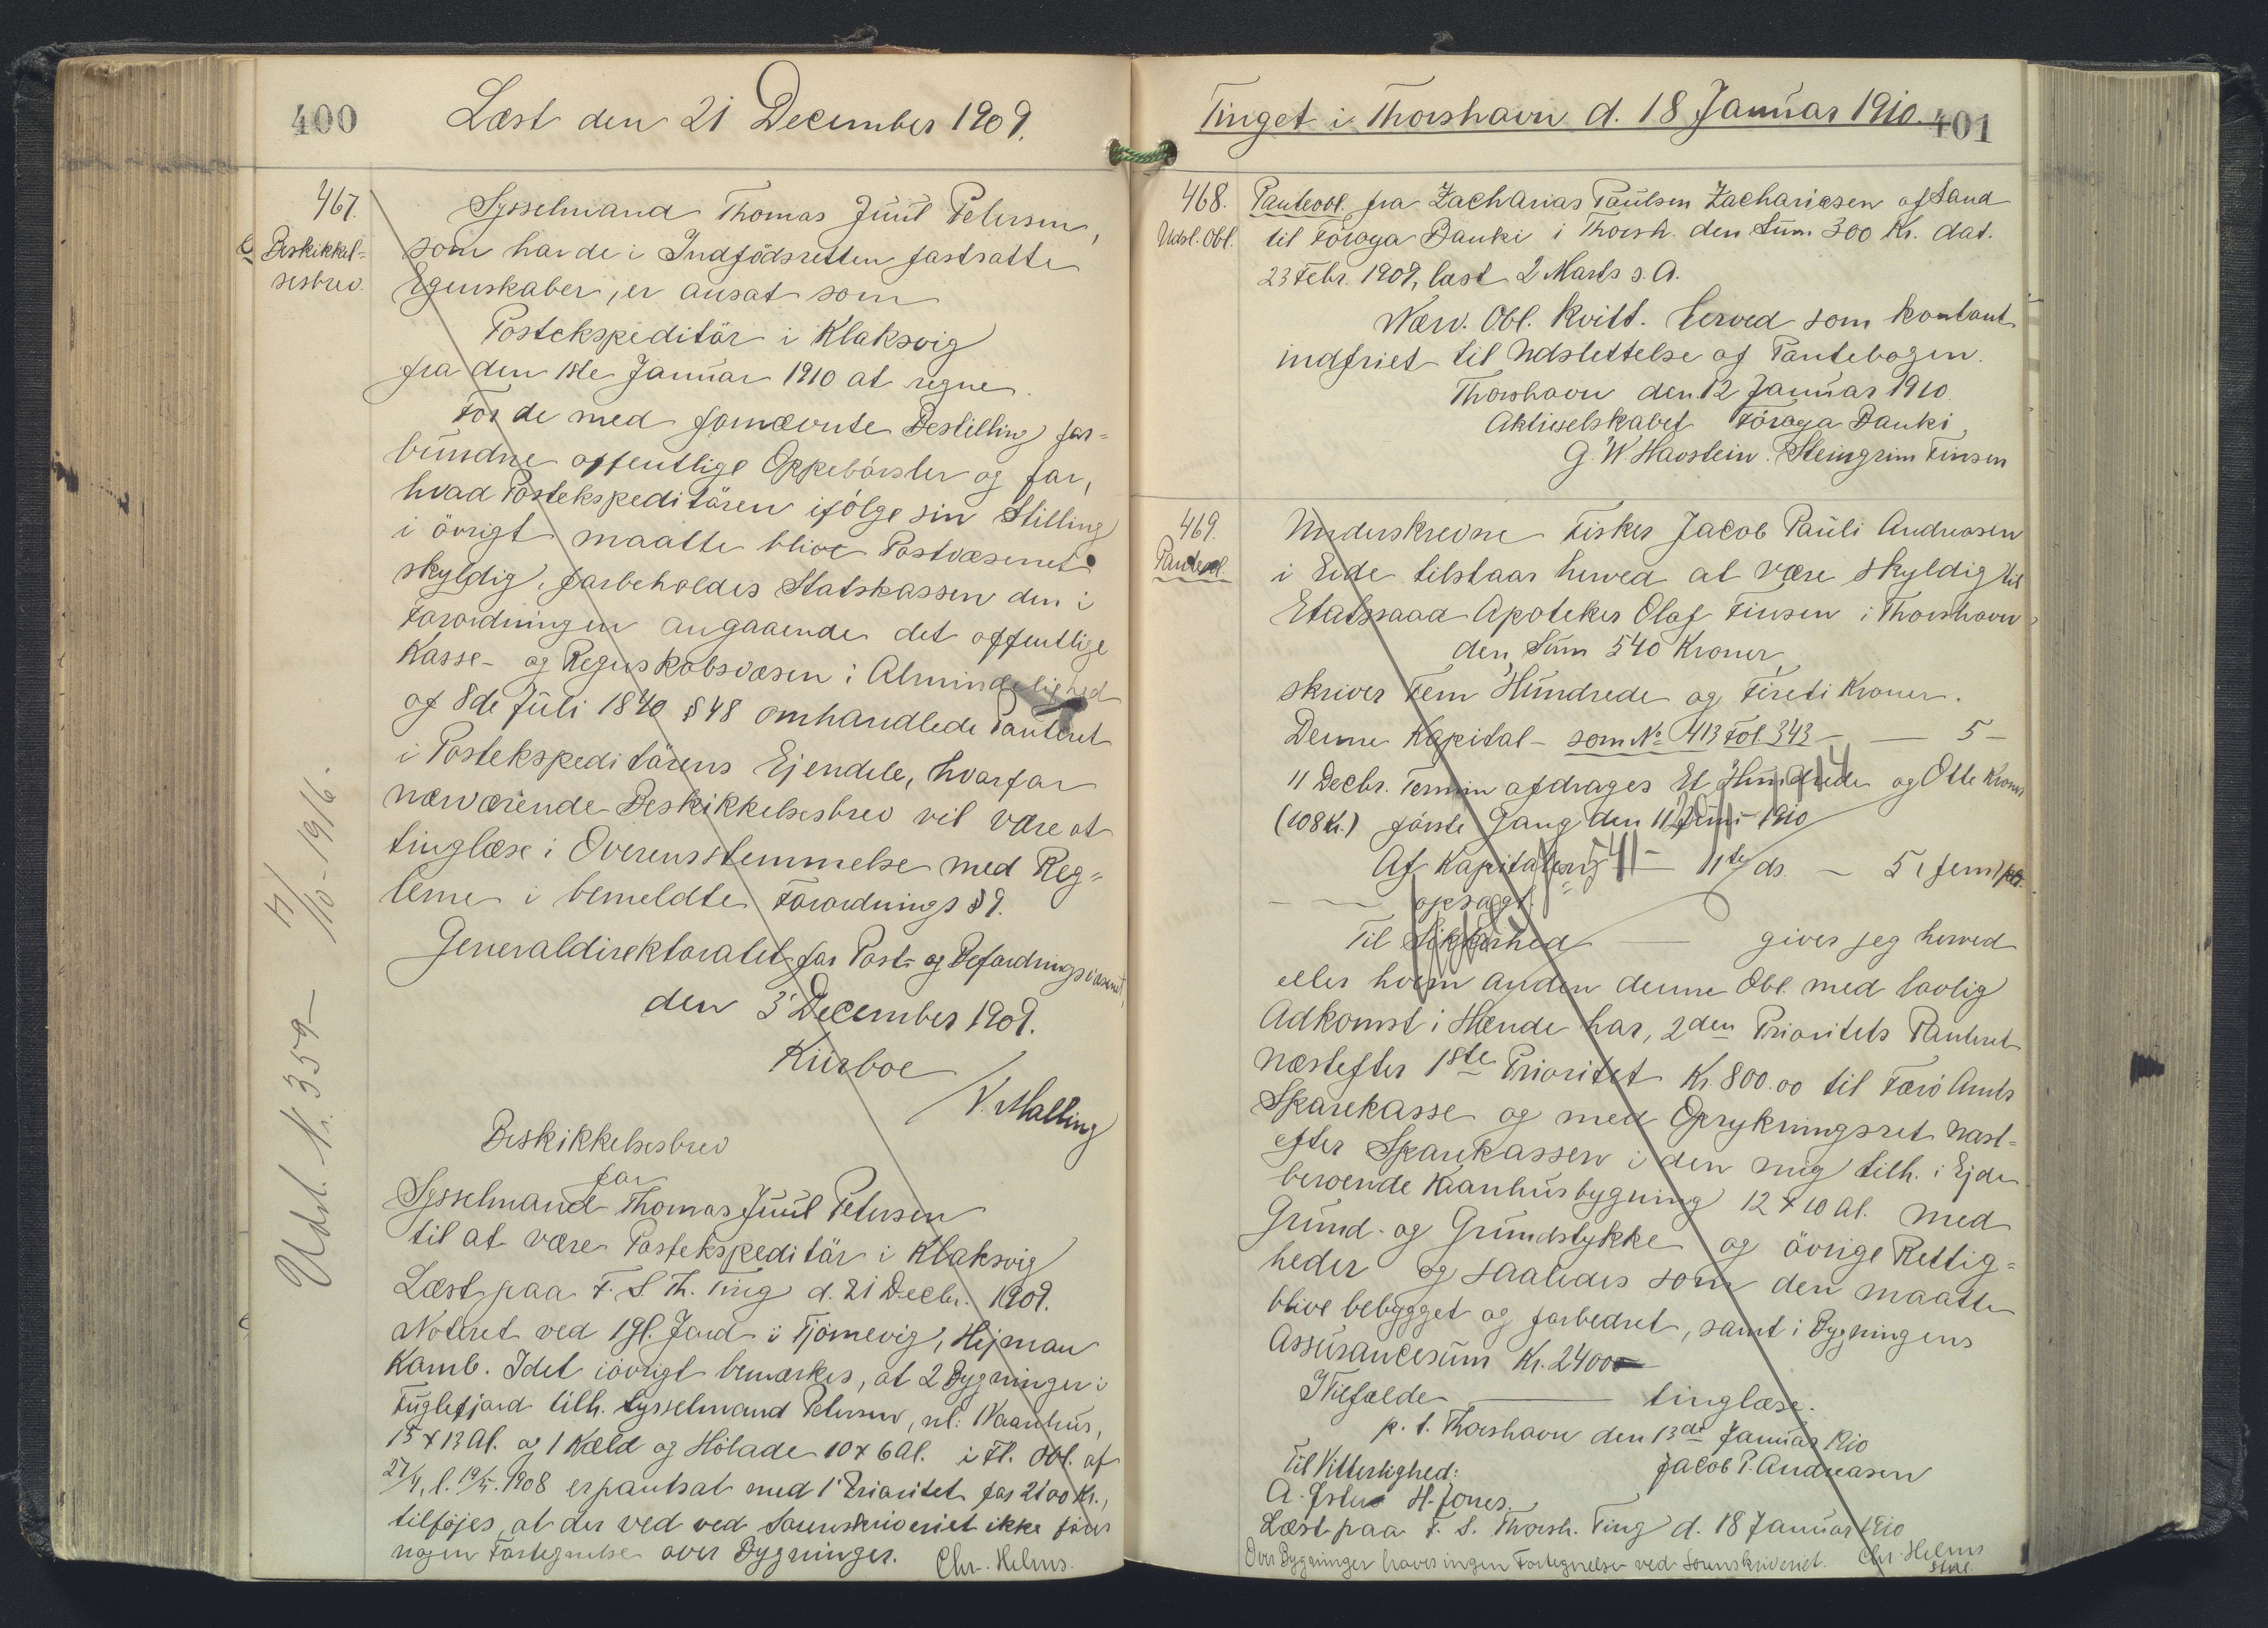 400
Læst den 21 December 1909.
467.
Beskikkel=
sesbrev.
Sysselmand Thomas Juul Petersen,
som har de i Indfödsretten fastsatte
Egenskaber, er ansat som
Postekspeditör i Klaksvig
fra den 1ste Januar 1910 at regne.
For de med fornævnte Bestilling for=
bundne offentlige Oppebörsler og for,
hvad Postekspeditören ifölge sin Stilling
i övrigt maatte blive Postvæsenet
skyldig, forbeholdes Statskassen den i
Forordningen angaaende det offentlige
Kasse- og Regnskabsvæsen i Almindelighed
af 8de Juli 1840 § 48 omhandlede Panteret
i Postekspeditörens Ejendele, hvorfor
nærværende Beskikkelsesbrev vil være at
tinglæse i Overensstemmelse med Reg=
lerne i bemeldte Forordnings § 9.
Generaldirektoratet for Post- og Befordringsvæsenet,
den 3' December 1909.
Kiørboe
/ V. Malling
Beskikkelsesbrev
for
Sysselmand Thomas Juul Petersen
til at være Postekspeditör i Klaksvig
Læst paa F. S. Th. Ting d. 21 Decbr. 1909.
Noteret ved 1 gl. Jord i Tjörnevig, Hejman
Kamb. Idet iövrigt bemærkes, at 2 Bygninger i
Fuglefjord tilh. Sysselmand Petersen, nl: 1 Vaanhus,
15 x 13 Al. og 1 Kæld og Hölade 10 x 6 Al. i Fl. Obl. af
27/4, l. 19/5. 1908 er pantsat med 1' Prioritet for 2100 Kr.,
tilföjes, at der ved ved Sorenskriveriet ikke föres
nogen Fortegnelse over Bygninger. Chr. Helms.
Udsl. N. 359 - 17/10 - 1916.
Tinget i Thorshavn d. 18 Januar 1910.
401
468.
Udsl. Obl.
Panteobl. fra Zacharias Paulsen Zachariasen af Sand
til Föroya Banki i Thorsh. den Sum 300 Kr. dat.
23 Febr. 1909, læst 2 Marts s. A.
Nærv. Obl. kvitt. herved som kontant
indfriet til Udslettelse af Pantebogen.
Thorshavn den 12 Januar 1910.
Aktieselskabet Föroya Banki,
G. W. Havstein. Steingrim Finsen
469.
Panteobl.
Underskrevne Fisker Jacob Pauli Andreasen
i Eide tilstaar herved at være skyldig til
Etatsraad Apoteker Olaf Finsen i Thorshavn
den Sum 540 Kroner,
skriver Fem Hundrede og Fireti Kroner.
Denne Kapital - som No 413 Fol 343 - — 5 -
11 Decbr. Termin afdrages Et Hundrede og Otte Kroner
(108 Kr.) förste Gang den 11 Juni 1910
Af Kapitalen — 11te ds. - 5 (fem) pCt.
- — opsagt.
Til Sikkerhed — giver jeg herved
eller hvem anden denne Obl. med lovlig
Adkomst i Hænde har, 2den Prioritets Panteret
næstefter 1ste Prioritet Kr. 800.00 til Færö Amts
Sparekasse og med Oprykningsret næst=
efter Sparekassen i den mig tilh. i Ejde
beroende Vaanhusbygning 12 x 10 Al. med
Grund- og Grundstykke og övrige Rettig=
heder og saaledes som den maatte
blive bebygget og forbedret, samt i Bygningens
Assurancesum Kr. 2400
I Tilfælde — tinglæse.
p. t. Thorshavn den 13de Januar 1910
Jacob P. Andreasen
Til Vitterlighed:
H. Jones.
Læst paa F. S. Thorsh. Ting d. 18 Januar 1910
Over Bygninger haves ingen Fortegnelse ved Sorenskriveriet. Chr. Helms